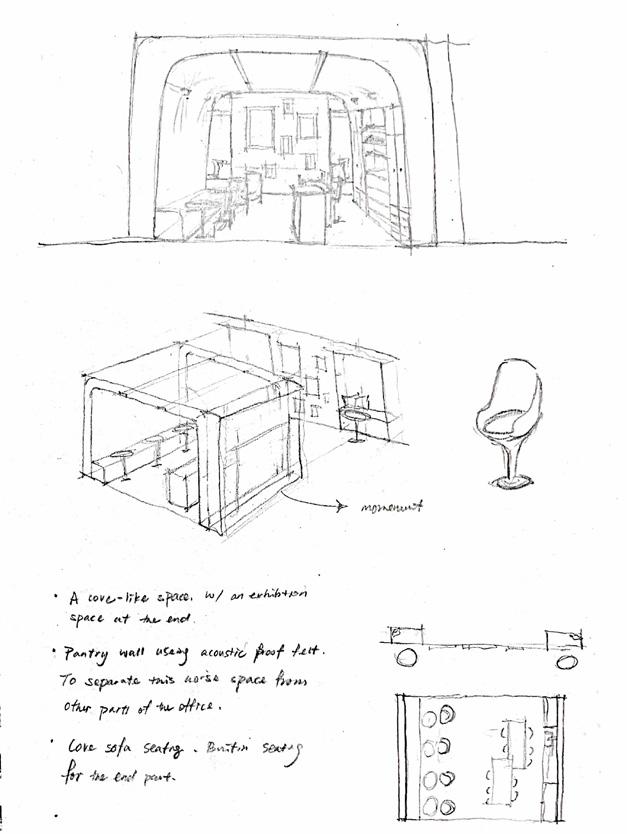 movement
• A cove-like space. w/ an exhibition
space at the end.
• Pantry wall using acoustic proof felt.
To separate this noise space from
other parts of the office.
• Cove sofa seating. Built in seating
for the end part.
•